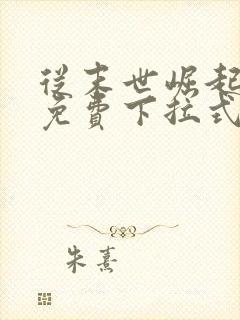 從末世崛起
免費下拉式
朱熹